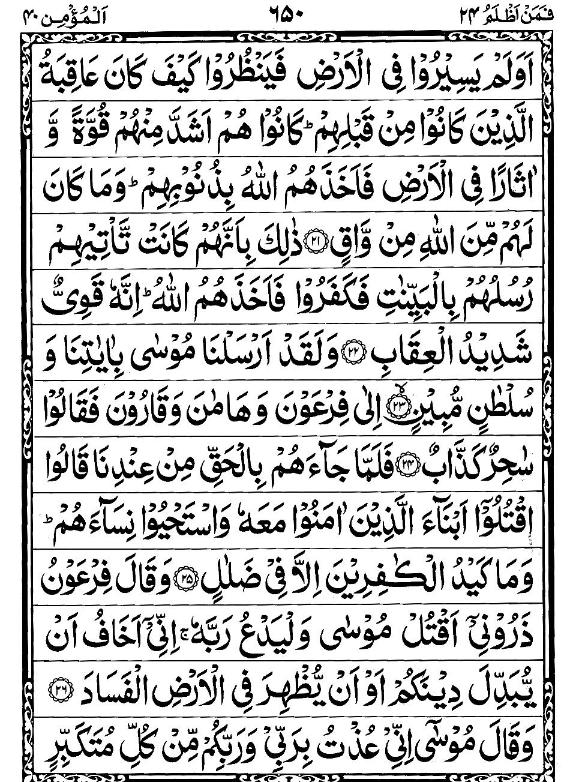 فمن اظلم ٢٤ ٦٥٠ المؤمن ٤٠
اَوَلَمۡ يَسِيۡرُوۡا فِى الۡاَرۡضِ فَيَنۡظُرُوۡا كَيۡفَ كَانَ عَاقِبَةُ
الَّذِيۡنَ كَانُوۡا مِنۡ قَبۡلِهِمۡؕ كَانُوۡا هُمۡ اَشَدَّ مِنۡهُمۡ قُوَّةً وَّ
اٰثَارًا فِى الۡاَرۡضِ فَاَخَذَهُمُ اللّٰهُ بِذُنُوۡبِهِمۡؕ وَمَا كَانَ
لَهُمۡ مِّنَ اللّٰهِ مِنۡ وَّاقٍ ﴿۲۱﴾ ذٰلِكَ بِاَنَّهُمۡ كَانَتۡ تَّاۡتِيۡهِمۡ
رُسُلُهُمۡ بِالۡبَيِّنٰتِ فَكَفَرُوۡا فَاَخَذَهُمُ اللّٰهُؕ اِنَّهٗ قَوِىٌّ
شَدِيۡدُ الۡعِقَابِ ﴿۲۲﴾ وَلَقَدۡ اَرۡسَلۡنَا مُوۡسٰى بِاٰيٰتِنَا وَ
سُلۡطٰنٍ مُّبِيۡنٍۙ ﴿۲۳﴾ اِلٰى فِرۡعَوۡنَ وَهَامٰنَ وَقَارُوۡنَ فَقَالُوۡا
سٰحِرٌ كَذَّابٌ ﴿۲۴﴾ فَلَمَّا جَآءَهُمۡ بِالۡحَقِّ مِنۡ عِنۡدِنَا قَالُوا
اقۡتُلُوۡۤا اَبۡنَآءَ الَّذِيۡنَ اٰمَنُوۡا مَعَهٗ وَاسۡتَحۡيُوۡا نِسَآءَهُمۡؕ
وَمَا كَيۡدُ الۡكٰفِرِيۡنَ اِلَّا فِىۡ ضَلٰلٍ ﴿۲۵﴾ وَقَالَ فِرۡعَوۡنُ
ذَرُوۡنِىۡۤ اَقۡتُلۡ مُوۡسٰى وَلۡيَدۡعُ رَبَّهٗۚ اِنِّىۡۤ اَخَافُ اَنۡ
يُّبَدِّلَ دِيۡنَكُمۡ اَوۡ اَنۡ يُّظۡهِرَ فِى الۡاَرۡضِ الۡفَسَادَ ﴿۲۶﴾
وَقَالَ مُوۡسٰٓى اِنِّىۡ عُذۡتُ بِرَبِّىۡ وَرَبِّكُمۡ مِّنۡ كُلِّ مُتَكَبِّرٍ